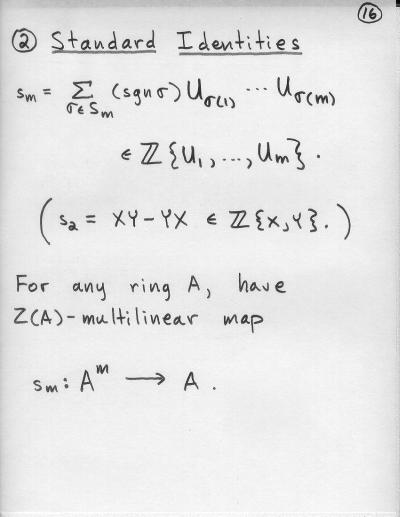 16
② Standard Identities
sₘ = Σ_{σ∈Sₘ} (sgn σ) U_{σ(1)} ⋯ U_{σ(m)}
∈ ℤ{U₁, ..., Uₘ}.
(s₂ = XY - YX ∈ ℤ{X,Y}.)
For any ring A, have
Z(A)-multilinear map
sₘ: Aᵐ ⟶ A.